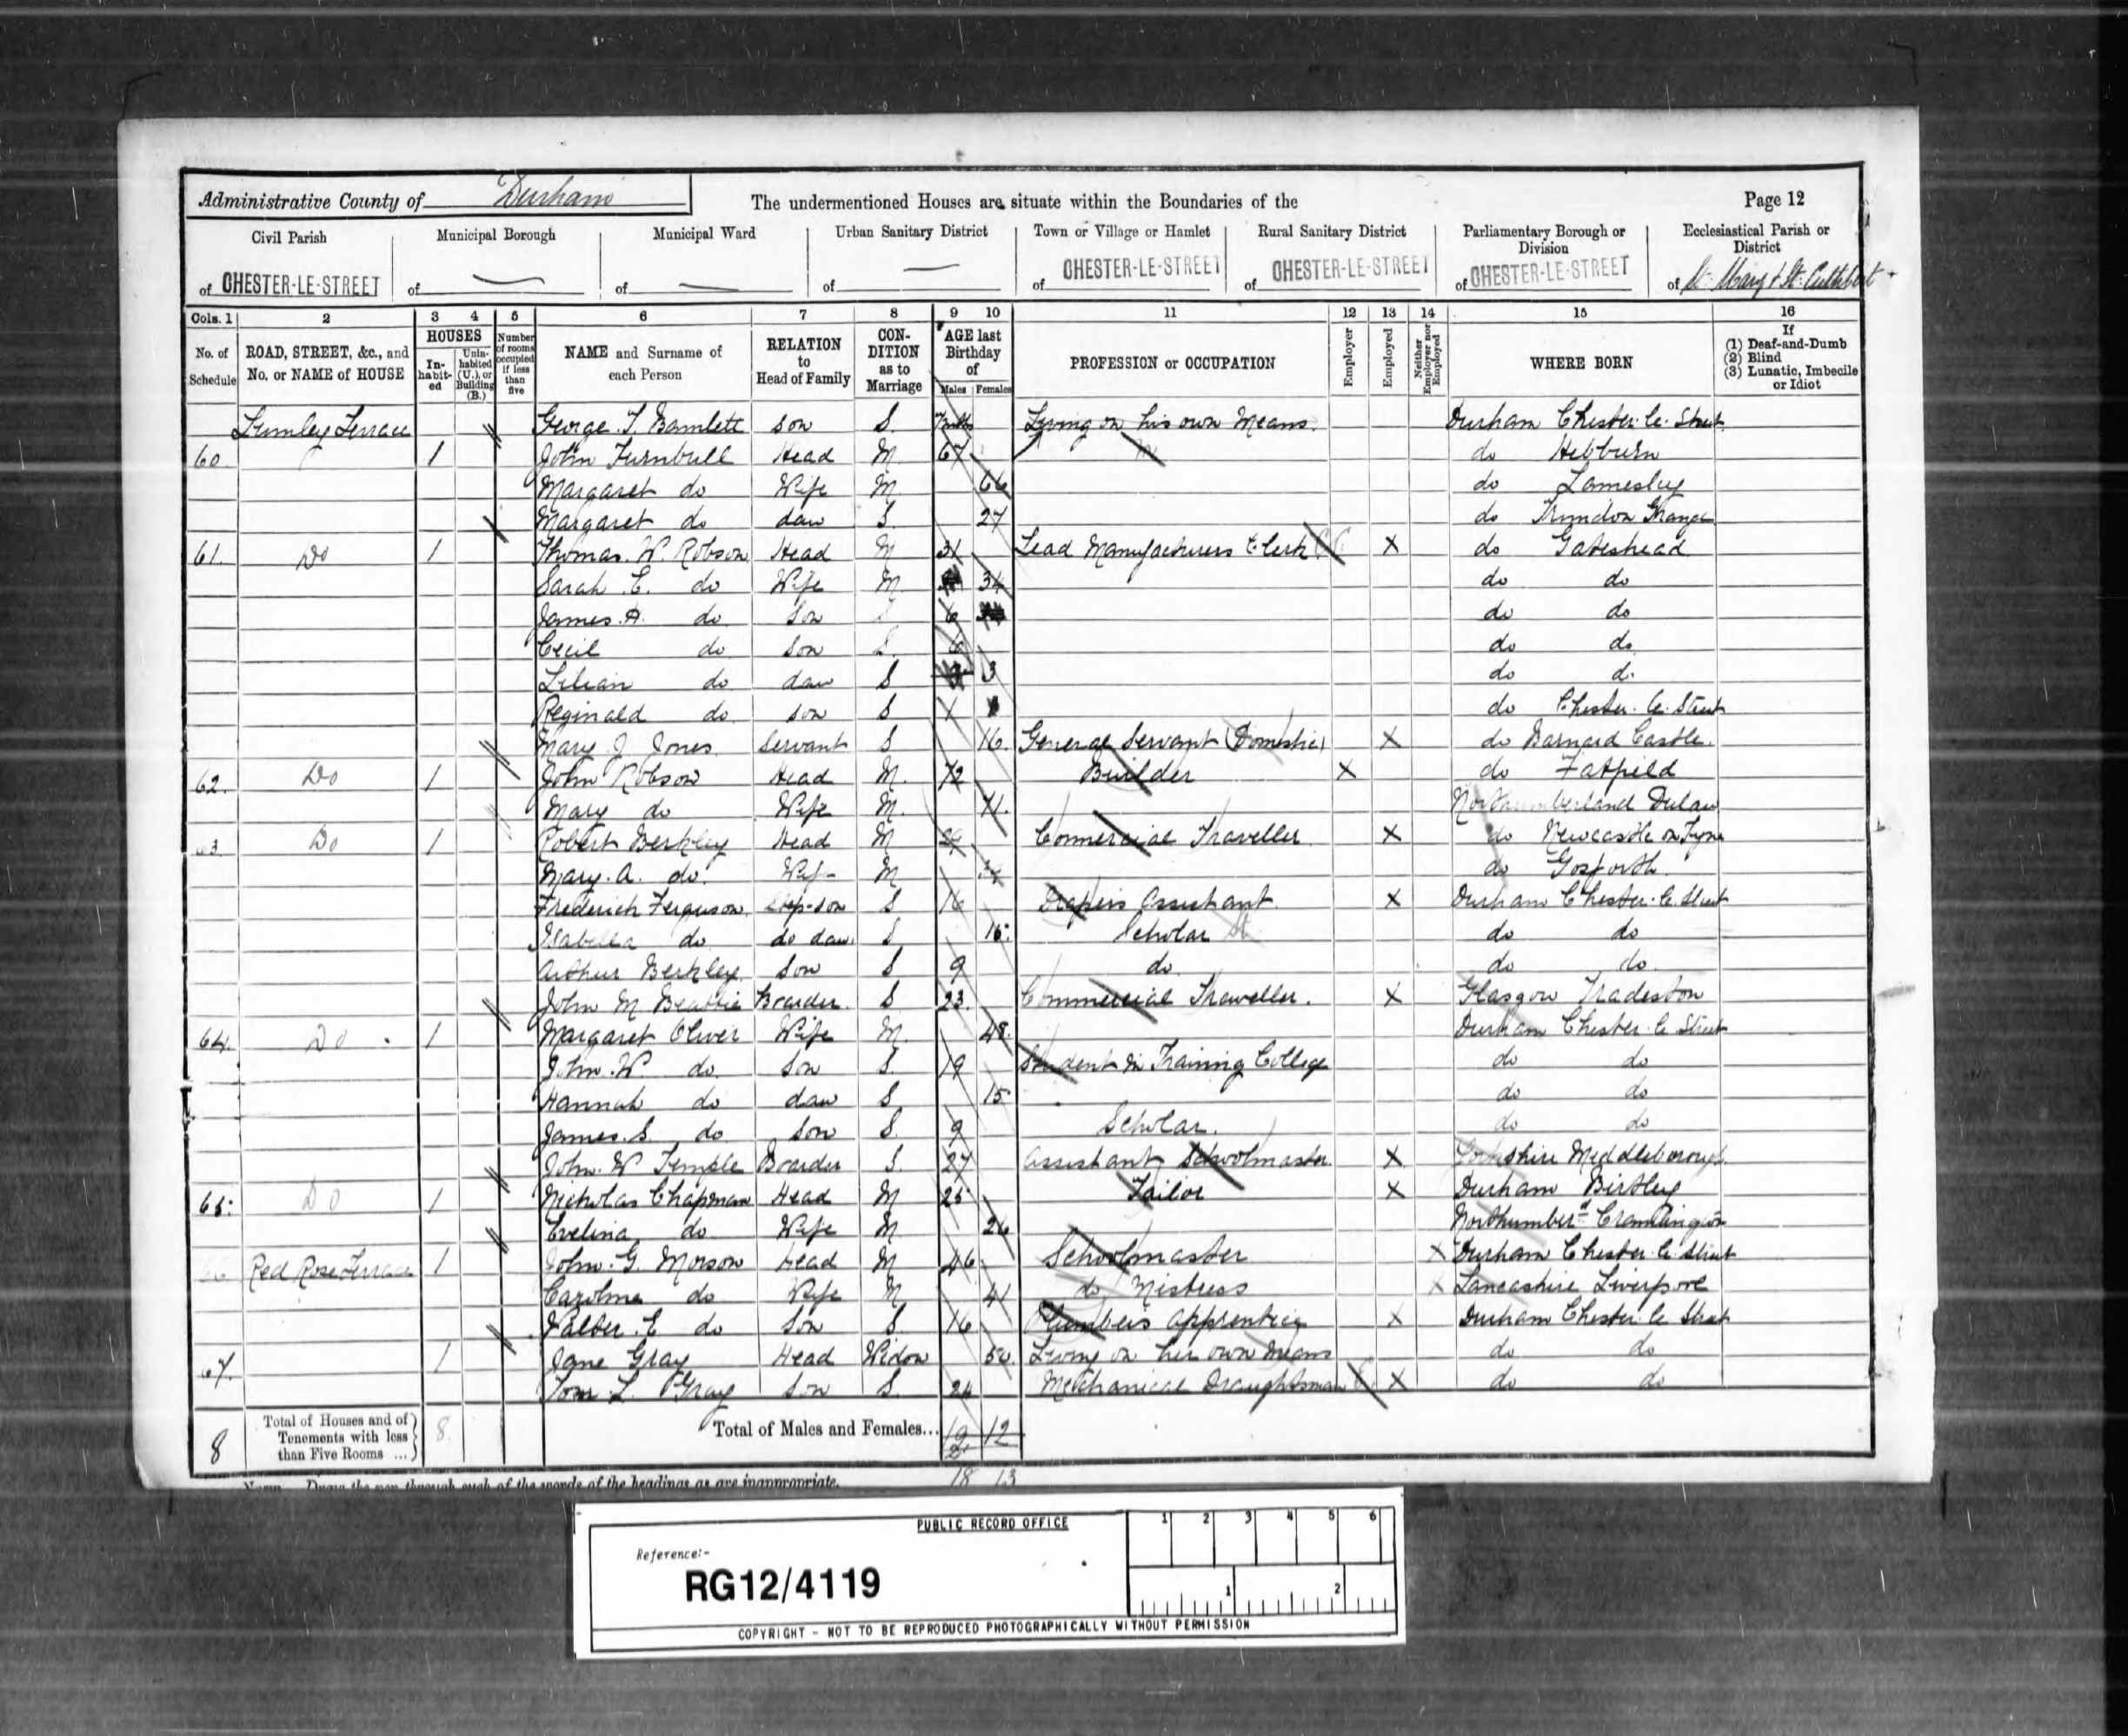 Administrative County of Durham
The undermentioned Houses are situate within the Boundaries of the
Page 12
Civil Parish of CHESTER-LE-STREET
Municipal Borough of —
Municipal Ward of —
Urban Sanitary District of —
Town or Village or Hamlet of CHESTER-LE-STREET
Rural Sanitary District of CHESTER-LE-STREET
Parliamentary Borough or Division of CHESTER-LE-STREET
Ecclesiastical Parish or District of St. Mary & St. Cuthbert
Cols. 1 2 3 4 5 6 7 8 9 10 11 12 13 14 15 16
No. of Schedule
ROAD, STREET, &c., and No. or NAME of HOUSE
HOUSES
Inhabited
Uninhabited (U.), or Building (B.)
Number of rooms occupied if less than five
NAME and Surname of each Person
RELATION to Head of Family
CONDITION as to Marriage
AGE last Birthday of
Males Females
PROFESSION or OCCUPATION
Employer
Employed
Neither Employer nor Employed
WHERE BORN
If (1) Deaf-and-Dumb (2) Blind (3) Lunatic, Imbecile or Idiot
Lumley Terrace George. T. Bamlett son S. Living on his own Means. Durham Chester-le-Street
60. 1 John Turnbull Head M. 67 do Hebburn
Margaret do Wife M. 66 do Lamesley
Margaret do daw S 27 do Trimdon Grange
61. Do 1 Thomas. W. Robson Head M 31 Lead Manufacturers Clerk X do Gateshead
Sarah E. do Wife M. 34 do do
James. A. do Son 6 do do
Cecil do son S. 6 do do
Lilian do daw S 3 do do
Reginald do son S 1 do Chester-le-Street
Mary J Jones Servant S 16. General Servant (Domestic) X do Barnard Castle.
62. Do 1 John Robson Head M. 72 Builder X do Fatfield
Mary do Wife M. 71. Northumberland
63 Do 1 Robert Berkley Head M Commercial Traveller X do Newcastle on Tyne
Mary. A. do. Wife M do Gosforth
Frederick Ferguson Step-son S 16 Drapers Assistant X Durham Chester-le-Street
Isabella do do daw. S 15. Scholar do do
Arthur Berkley Son S 9 do do do.
John M Beattie Boarder. S 23. Commercial Traveller. X Glasgow Tradeston
64. Do 1 Margaret Oliver Wife M. 48. Durham Chester-le-Street
John. W. do Son S. 19 Student in Training College do do
Hannah do daw S 15 do do
James. S. do Son S. 9 Scholar. do do
John. W Temple Boarder S. 27 Assistant Schoolmaster. X Yorkshire Middlesborough
65. Do 1 Nicholas Chapman Head M 25 Tailor X Durham Birtley
Evelina do Wife M 26 Northumberd Cramlington
66 Red Rose Terrace 1 John. G. Morson Head M 46. Schoolmaster X Durham Chester-le-Street
Caroline do Wife M 41 do Mistress X Lancashire Liverpool
Walter. E do Son S 16 Plumbers Apprentice X Durham Chester-le-Street
67. 1 Jane Gray Head Widow 50. Living on her own Means do do
Tom. L. Gray Son S. 24 Mechanical Draughtsman X do do
8 Total of Houses and of Tenements with less than Five Rooms ... 8.
Total of Males and Females... 12
18 13
NOTE.— Draw the pen through such of the words of the headings as are inappropriate.
PUBLIC RECORD OFFICE
Reference:-
RG12/4119
1 2 3 4 5 6
1 2
COPYRIGHT - NOT TO BE REPRODUCED PHOTOGRAPHICALLY WITHOUT PERMISSION